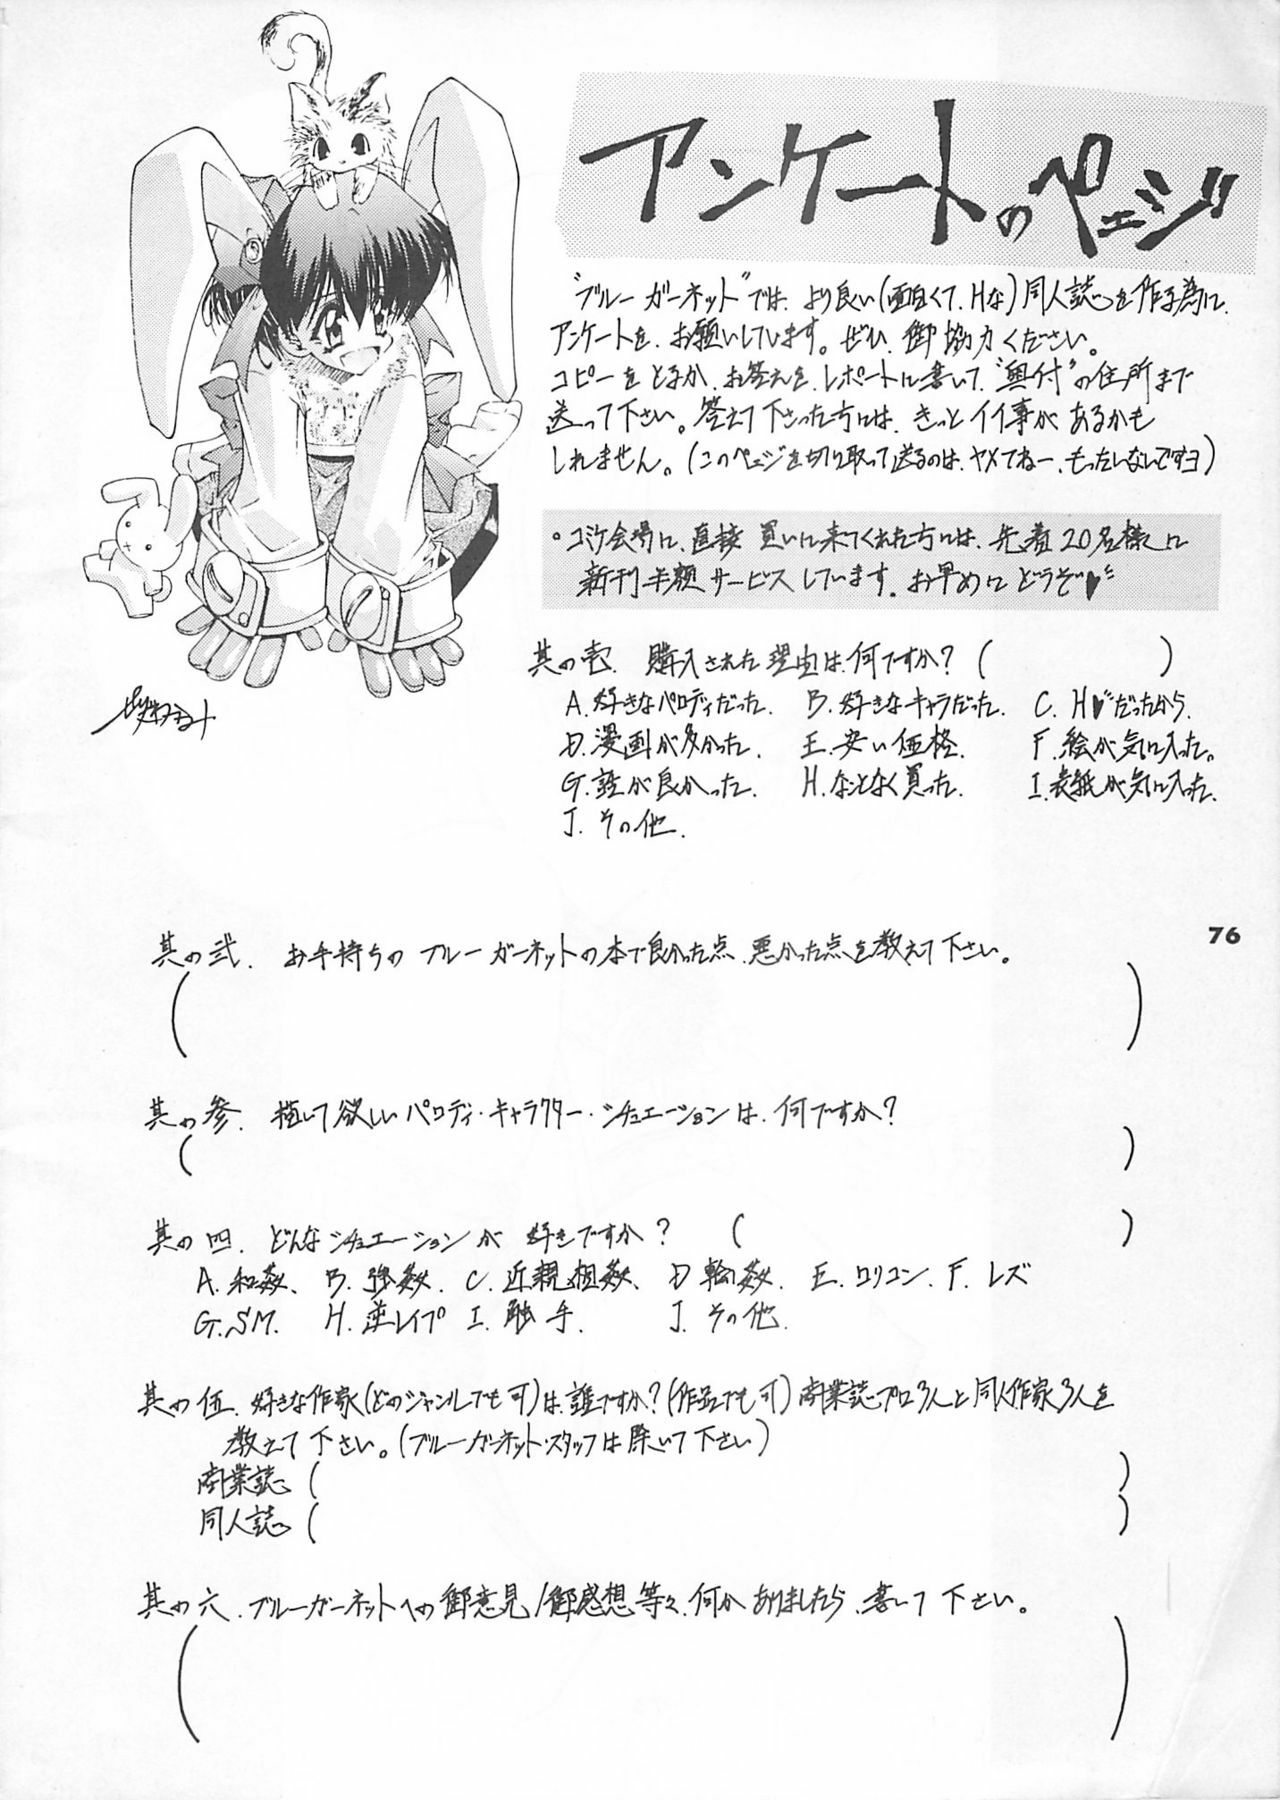 アンケートのページ
"ブルーガーネット"では、より良い(面白くて、Hな)同人誌を作る為に、
アンケートを、お願いしています。ぜひ、御協力ください。
コピーをとるか、お答えを、レポートに書いて、"奥付"の住所まで
送って下さい。答えて下さった方には、きっとイイ事があるかも
しれません。(このページを切り取って送るのは、ヤメてねー、もったいないですヨ)
・コミケ会場に、直接買いに来てくれた方には、先着20名様に
新刊半額サービスしています。お早めにどうぞ♥
其の壱. 購入された理由は、何ですか? ( )
A. 好きなパロディだった. B. 好きなキャラだった. C. H♥だったから.
D. 漫画が多かった. E. 安い価格. F. 絵が気に入った。
G. 話が良かった. H. なんとなく買った. I. 表紙が気に入った.
J. その他.
76
其の弐. お手持ちのブルーガーネットの本で良かった点、悪かった点を教えて下さい。
( )
其の参. 描いて欲しいパロディ・キャラクター・シチュエーションは、何ですか?
( )
其の四. どんなシチュエーションが好きですか? ( )
A. 和姦、 B. 強姦、 C. 近親相姦、 D. 輪姦、 E. ロリコン. F. レズ
G. SM. H. 逆レイプ I. 触手. J. その他.
其の伍. 好きな作家(どのジャンルでも可)は、誰ですか?(作品でも可)商業誌プロ3人と同人作家3人を
教えて下さい。(ブルーガーネット・スタッフは除いて下さい)
商業誌 ( )
同人誌 ( )
其の六. ブルーガーネットへの御意見/御感想等々、何かありましたら、書いて下さい。
( )